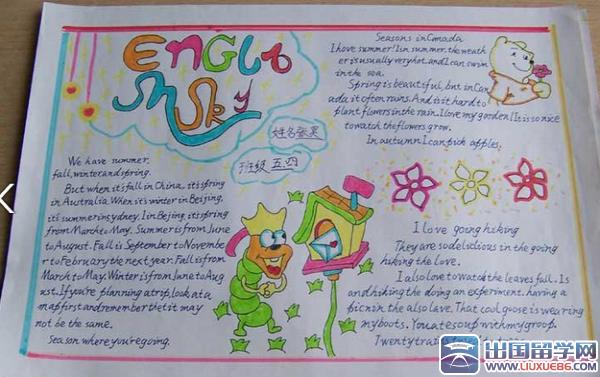 Englis
h Sky
姓名
班级 五.四
We have summer,
fall, winter and spring.
But when it's fall in China, it's spring
in Australia. When it's winter in Beijing,
it's summer in sydney. I in Bejing, it's spring
from March to May. Summer is from June
to August. Fall is September to Novembe
r to February the next year. Fall is from
March to May. Winter is from June to Aug
ust. If you're planning a trip, look at a
map first and remember the tit may
not be the same.
Season where you're going.
Seasons in Canada
I have summer! I in summer, the weath
er is usually very hot, and I can swim
in the sea.
Spring is beautiful, but in Can
ada it often rains. And is it hard to
plant flowers in the rain. I love my garden! It is so nice
to watch the flowers grow.
In autumn I can pick apples.
I love going hiking
They are so delicious in the going
hiking the love.
I also love to watch the leaves fall. Is
and hiking the doing an experiment, having a
picnin the also lave. That cool goose is wearing
my boots. You ate soup with my group.
Twenty
出国留学网
www.liuxue86.com